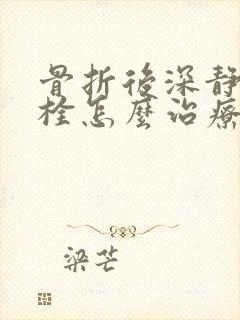 骨折後深靜
栓怎麼治療
梁芒